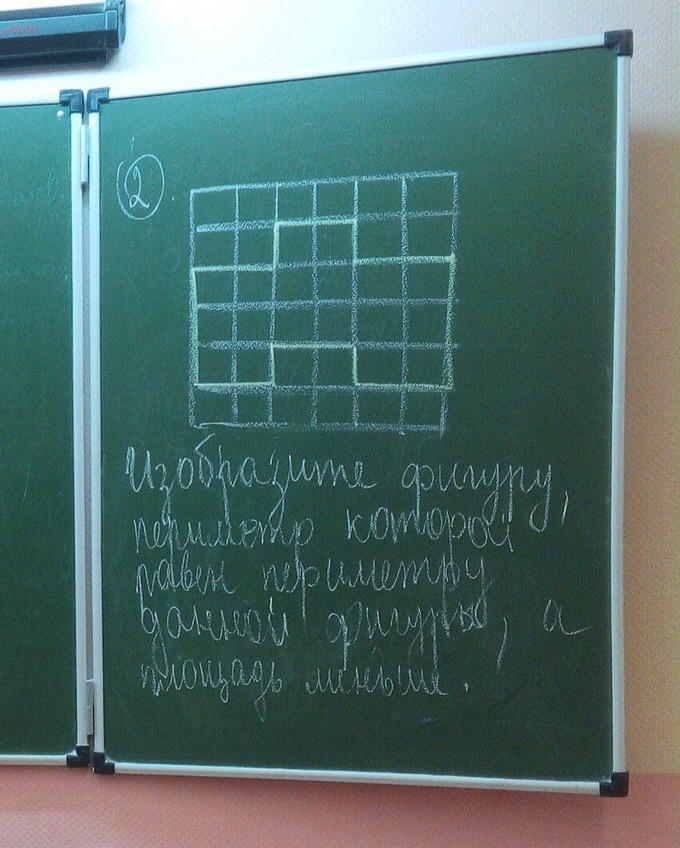 2
Изобразите фигуру,
периметр которой
равен периметру
данной фигуры, а
площадь меньше.